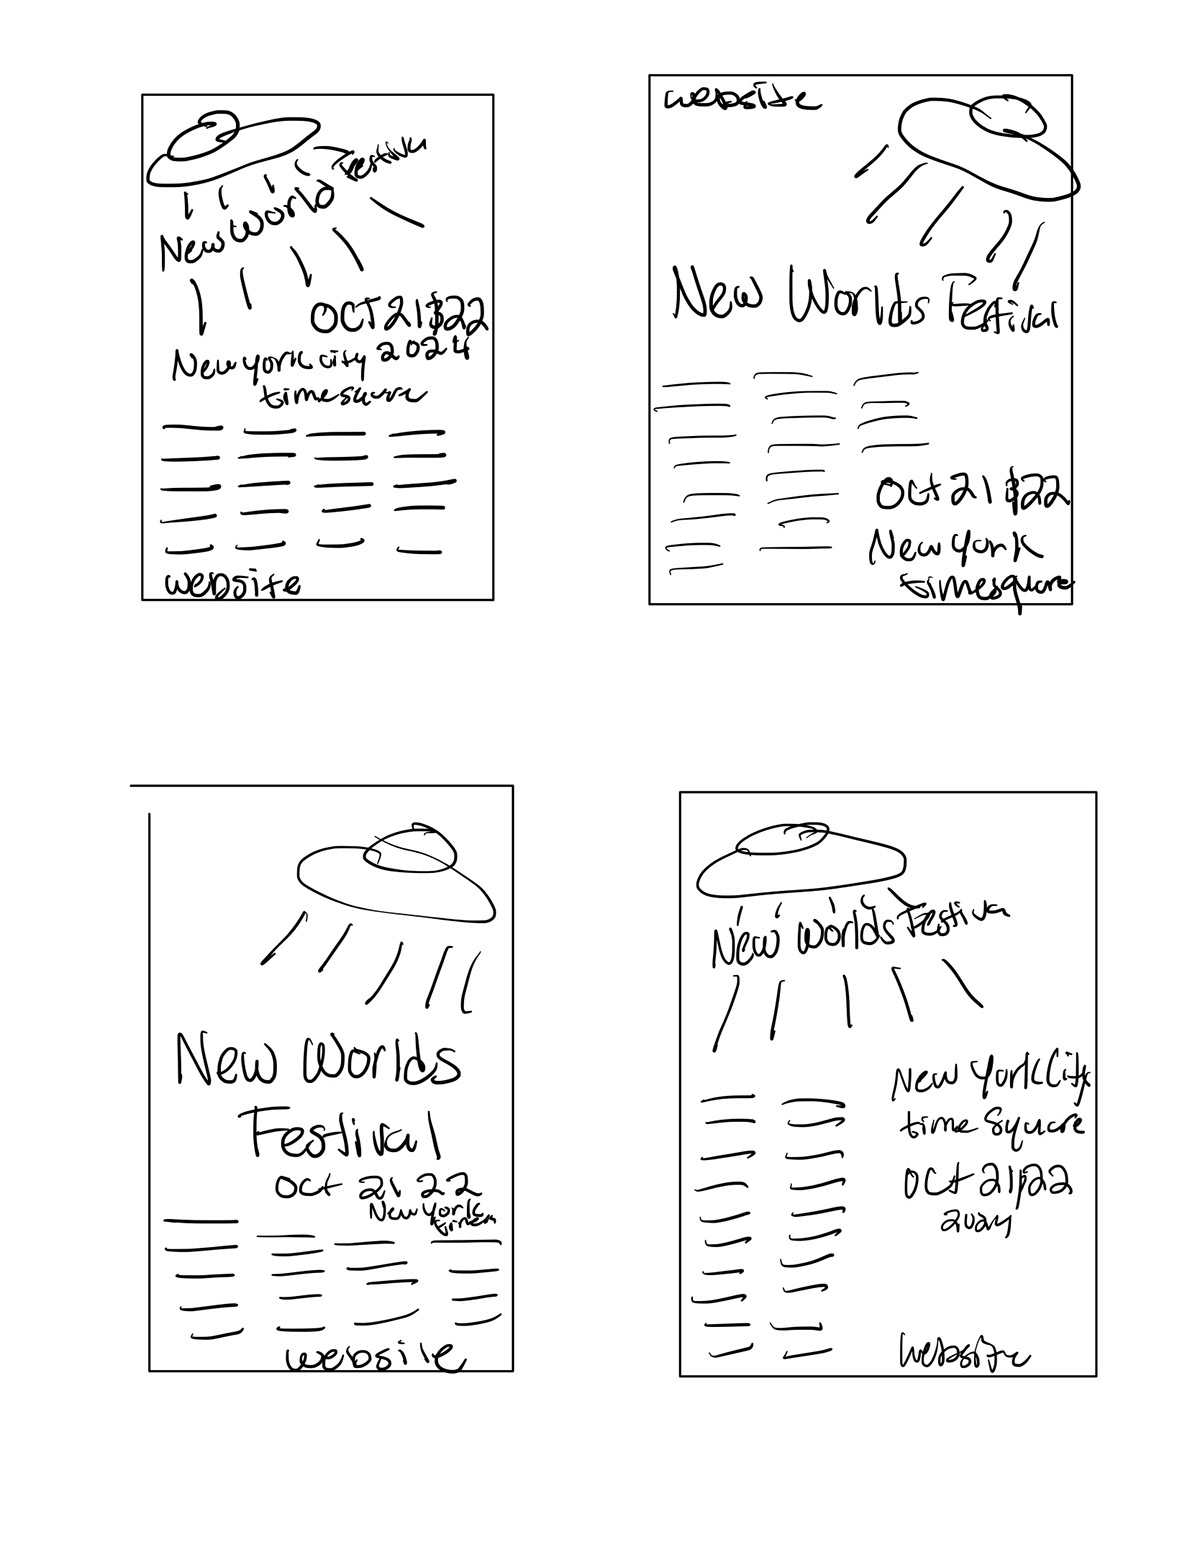 New World Festiva
OCT 21 & 22
New york city 2024
timesquare
website
website
New Worlds Festival
Oct 21 & 22
New York
timesquare
New Worlds
Festival
Oct 21 22
New York
website
New Worlds Festiva
New York City
time Square
Oct 21, 22
2024
website